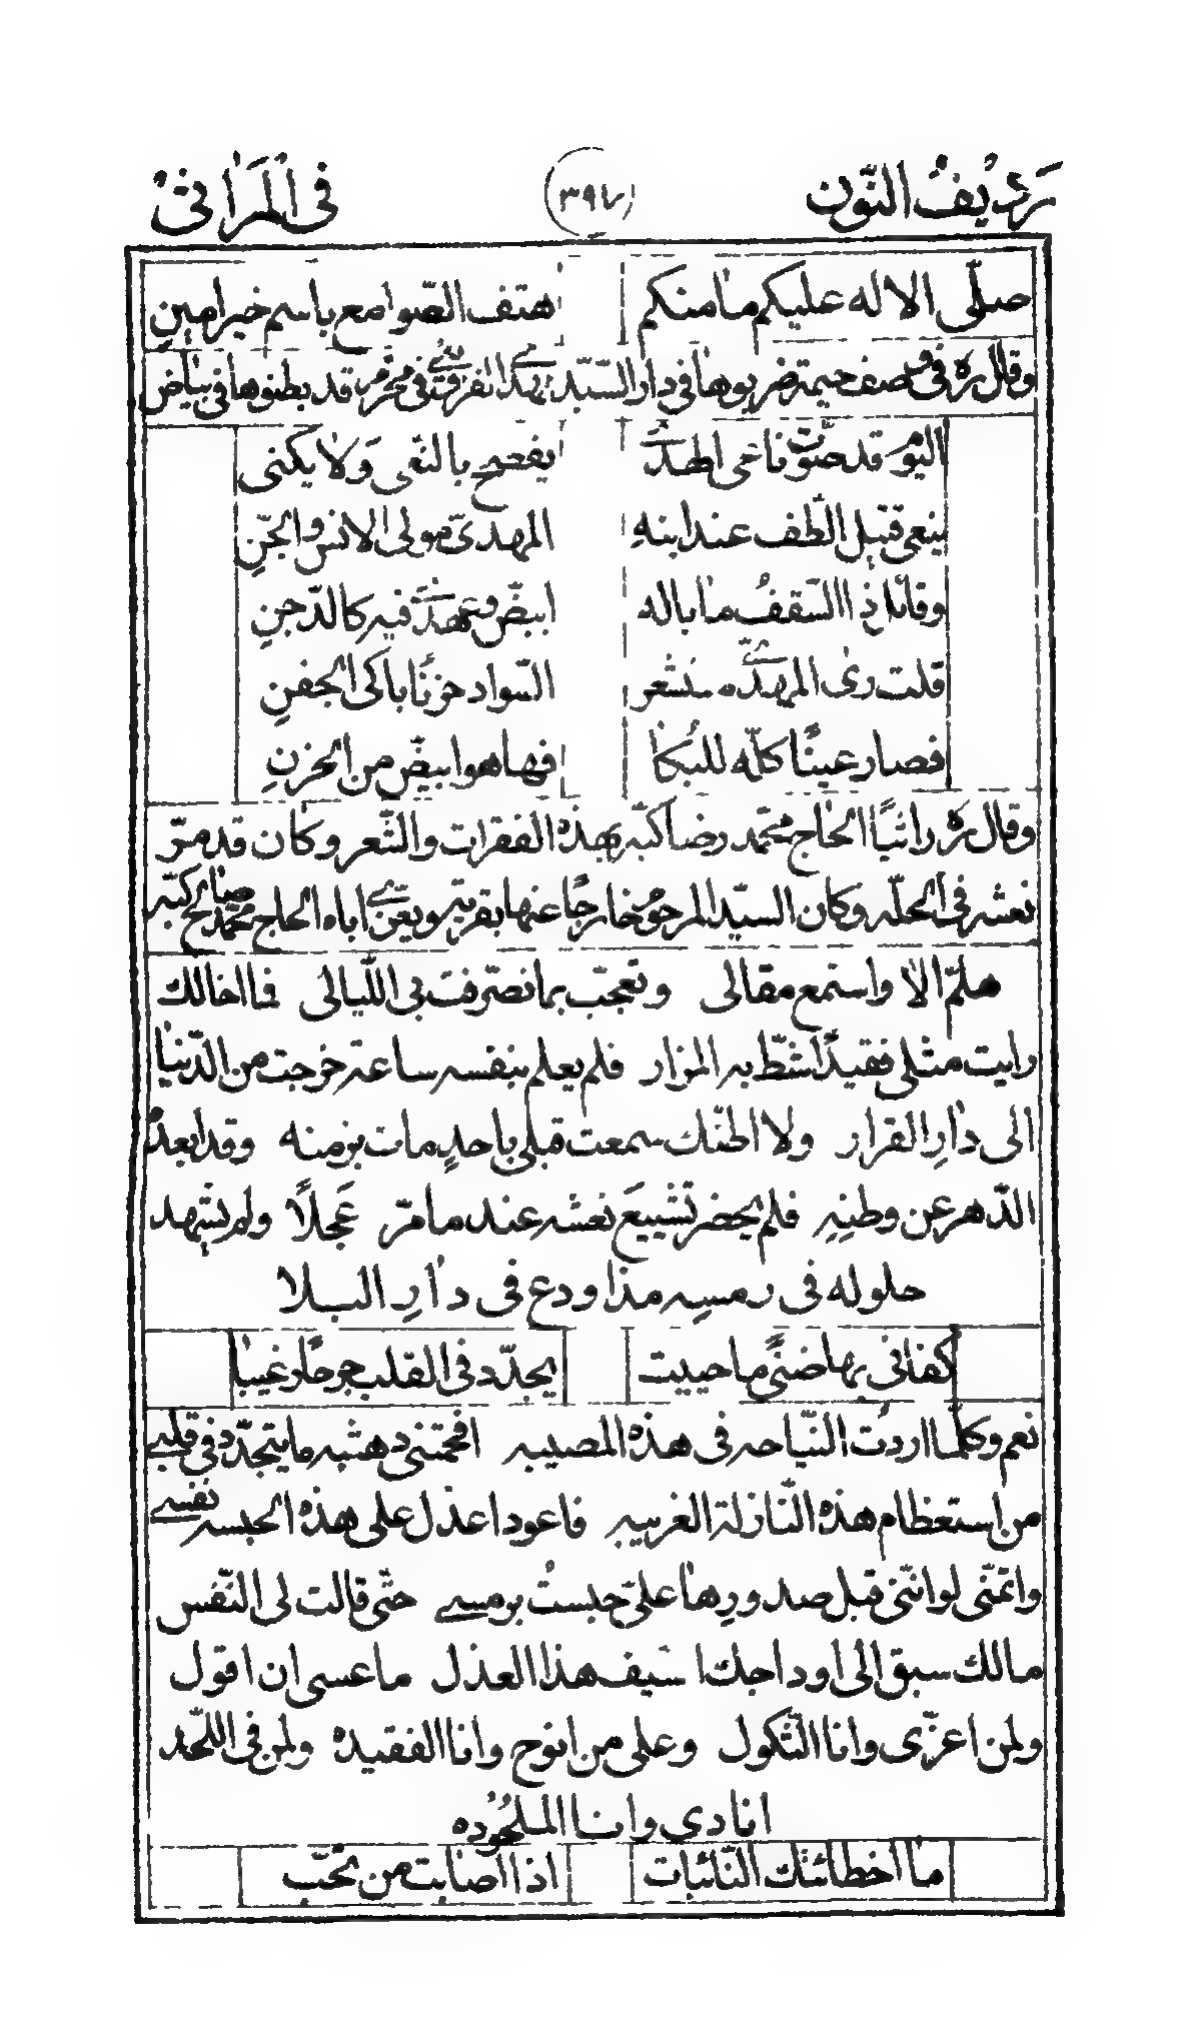 رديف النّون
٣٩٧
فى المراثى
صلّى الاله عليكم مامنكم هتف الصّوامع باسم خير امينِ
وقال ره فى وصف خيمة ضربوها فى دار السّيّد مهدى القزوينى فى محرّم قد بطنوها فى بياض
اليوم قد صوّت ناعى الهدى يفصح بالنّعى ولا يكنى
ينعى قتيل الطّف عند ابنهِ المهدىّ مولى الانس والجنّ
وقائل ذا السّقفُ ما باله ابيضّ وعهدى فيه كالدّجنِ
قلت رى المهدىّ مستشعر السّواد حزنًا باكى الجفنِ
فصار عينًا كلّه للبكا فها هو ابيضّ من الحزنِ
وقال ره راثيًا الحاج محمّد رضا كبّه بهذه الفقرات والشّعر وكان قد مرّ
نعشه فى الحلّه وكان السيّد المرحوم خارجًا عنها بقريته ويعزّى اباه الحاج محمّد صالح كبّه
هلمّ الا واستمع مقالى وتعجّب بما تصرّفت بى اللّيالى فما اخالك
رايت مثلى فقيدًا شطّ به المزار فلم يعلم بنفسه ساعة خرجت من الدّنيا
الى دار القرار ولا اظنّك سمعت قبلى باحدٍ مات بزمنه وقد ابعدهُ
الدّهر عن وطنِهِ فلم يحضر تشييعَ نعشه عند ما مرّ عَجلًا ولم يشهد
حلوله فى رمسِه مذ اودع فى دارِ البلا
كفانى بها ضنًى ما حييت يجدّد فى القلب جرحًا رغيبا
نعم وكلّما اردت النّياحه فى هذه المصيبه افحمتنى دهشه ما يتجدّد فى قلبى
من استعظام هذه النّازلة الغريبه فاعود اعذل على هذه الحبسه نفسى
واتمنّى لو انّنى قبل صدورِها علىّ حبستُ برمسى حتّى قالت لى النّفس
مالك سبق الى اوداجك سيف هذا العذل ما عسى ان اقول
ولمن اعزّى وانا الثّكول وعلى من انوح وانا الفقيده ولمن فى اللّحد
انادى وانا الملحُوده
ما اخطاتك النّائبات اذا اصابت من تحبّ